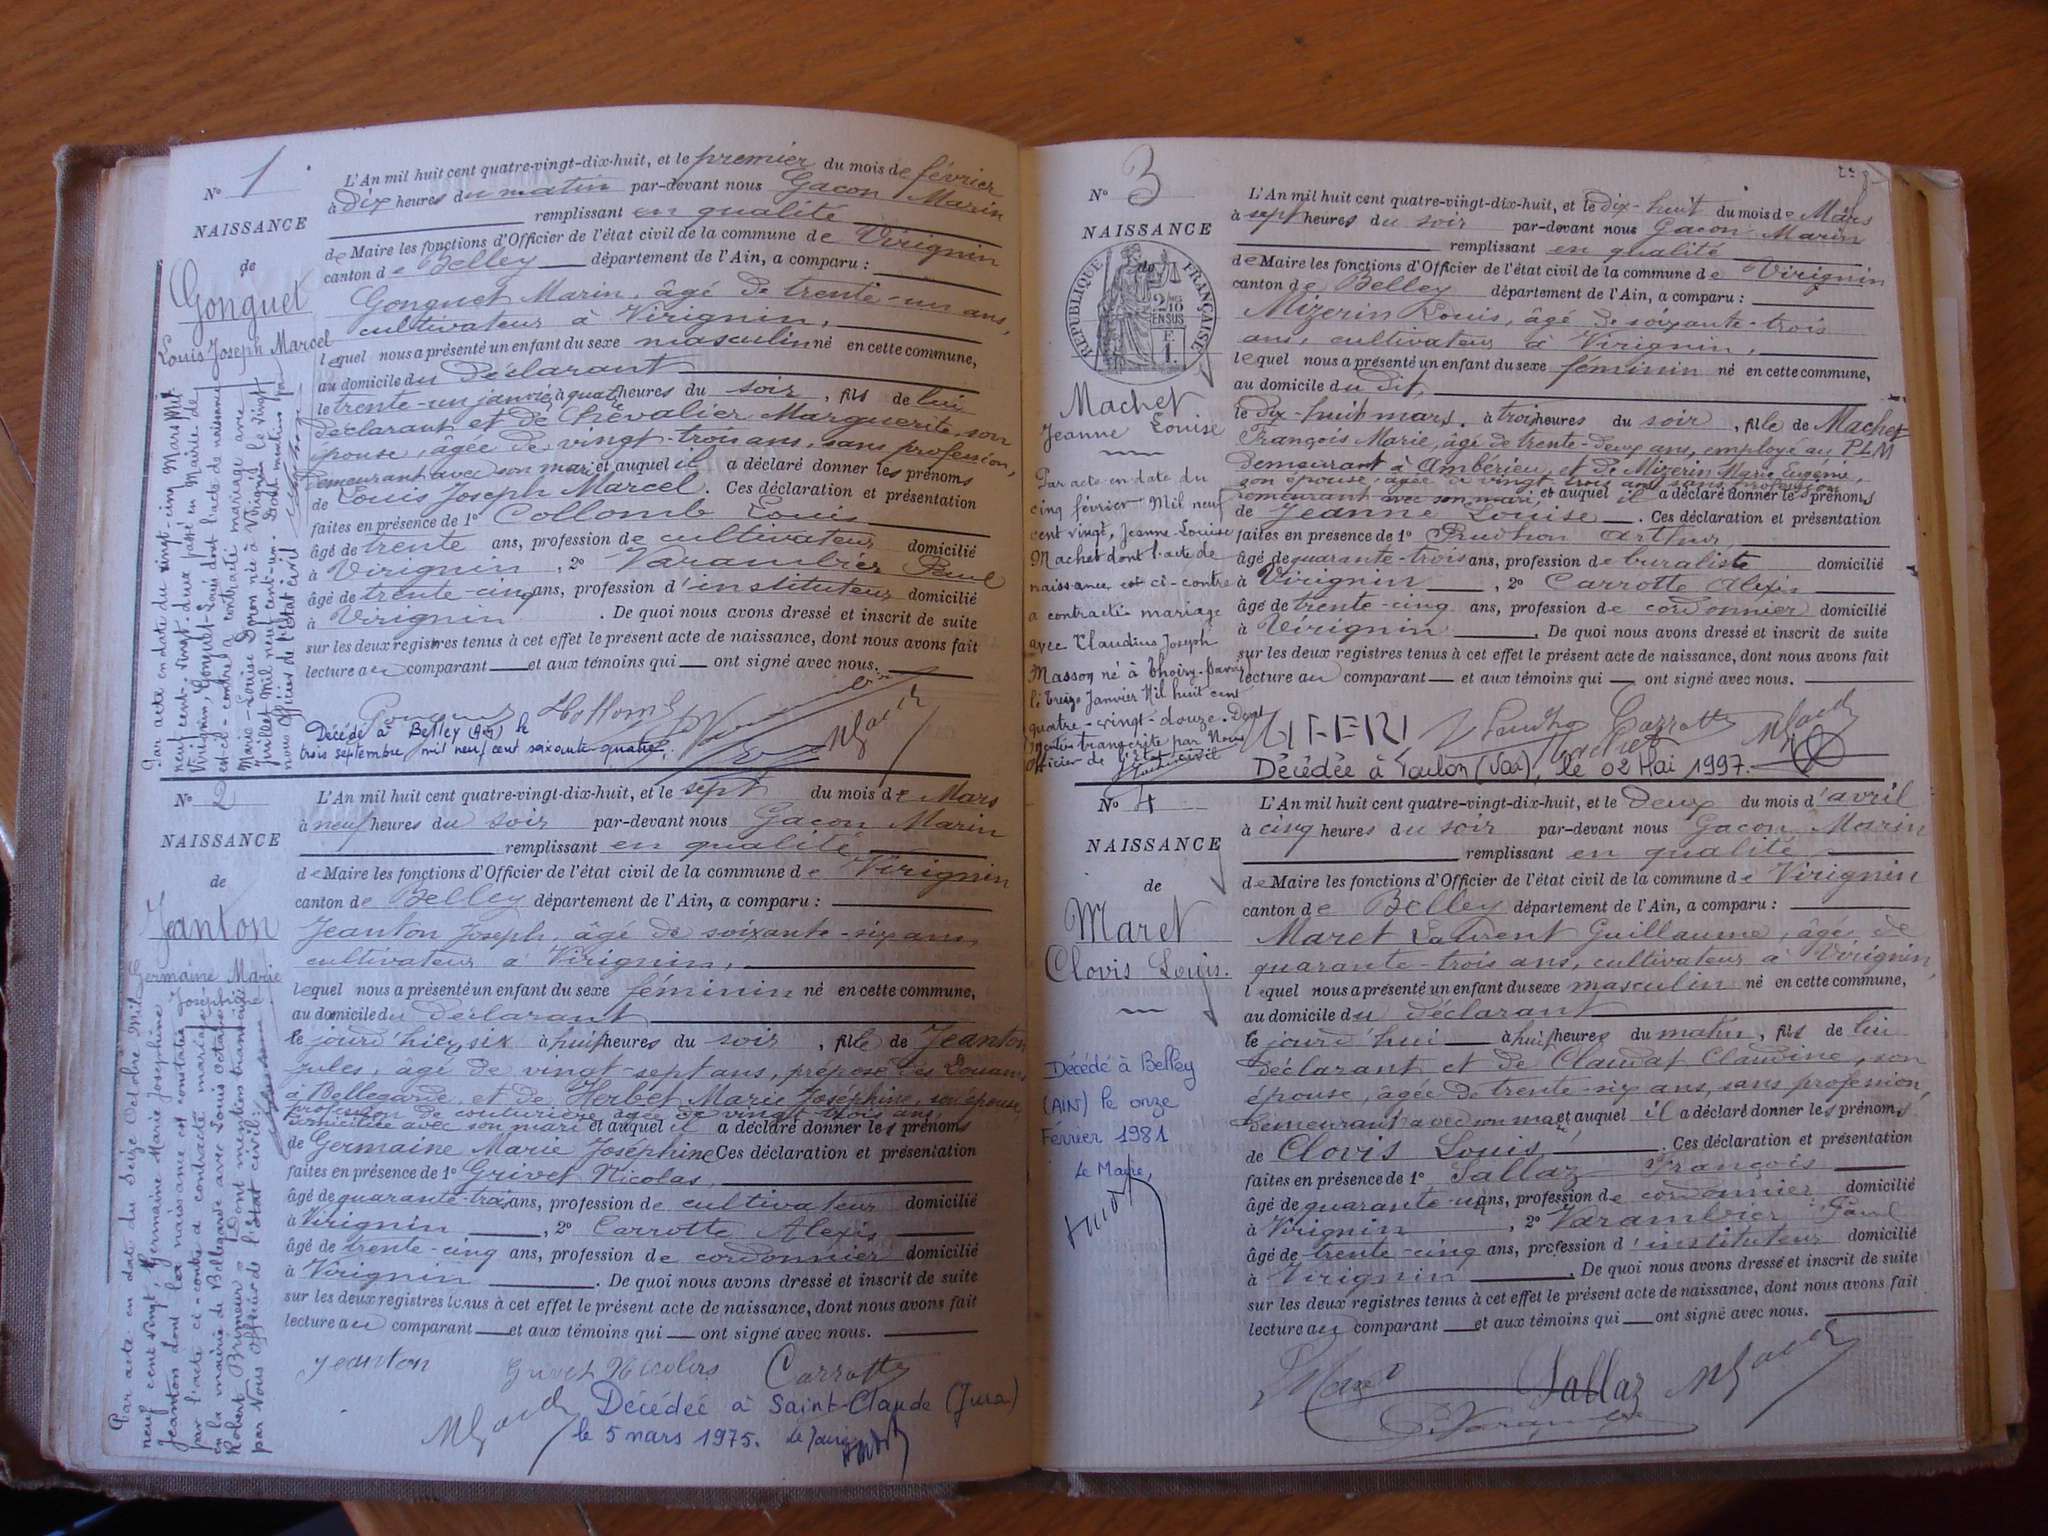 N° 1
L'An mil huit cent quatre-vingt-dix-huit, et le premier du mois de février
à dix heures du matin par-devant nous Gacon Marin
NAISSANCE
remplissant en qualité
de
de Maire les fonctions d'Officier de l'état civil de la commune de Virignin
canton de Belley département de l'Ain, a comparu :
Gonguet
Louis Joseph Marcel
Gonguet Marin, âgé de trente-un ans,
cultivateur à Virignin,
lequel nous a présenté un enfant du sexe masculin né en cette commune,
au domicile du déclarant
le trente-un janvier à quatre heures du soir, fils de lui
déclarant et de Chevalier Marguerite, son
épouse, âgée de vingt-trois ans, sans profession,
demeurant avec son mari et auquel il a déclaré donner les prénoms
de Louis Joseph Marcel. Ces déclaration et présentation
faites en présence de 1° Collomb Louis
âgé de trente ans, profession de cultivateur domicilié
à Virignin, 2° Varambier Paul
âgé de trente-cinq ans, profession d'instituteur domicilié
à Virignin. De quoi nous avons dressé et inscrit de suite
sur les deux registres tenus à cet effet le présent acte de naissance, dont nous avons fait
lecture au comparant et aux témoins qui ont signé avec nous.
Par acte en date du vingt-cinq Mars Mil
neuf cent vingt-deux passé en Mairie de
Virignin, Gonguet Louis dont l'acte de naissance
est ci-contre a contracté mariage avec
Marie-Louise née à Virignin le vingt
juillet Mil neuf cent-un. Dont mention par
nous Officier de l'Etat civil
Décédé à Belley (Ain) le
trois septembre mil neuf cent soixante quatre.
N° 2
L'An mil huit cent quatre-vingt-dix-huit, et le sept du mois de Mars
à neuf heures du soir par-devant nous Gacon Marin
NAISSANCE
remplissant en qualité
de
de Maire les fonctions d'Officier de l'état civil de la commune de Virignin
canton de Belley département de l'Ain, a comparu :
Jeanton
Germaine Marie
Joséphine
Jeanton Joseph, âgé de soixante-six ans,
cultivateur à Virignin,
lequel nous a présenté un enfant du sexe féminin né en cette commune,
au domicile du déclarant
le jourd'hier, six à huit heures du soir, fille de Jeanton
Jules, âgé de vingt-sept ans, préposé des Douanes
à Bellegarde, et de Herbet Marie Joséphine, son épouse,
profession de couturière, âgée de vingt-trois ans,
domiciliée avec son mari et auquel il a déclaré donner les prénoms
de Germaine Marie Joséphine Ces déclaration et présentation
faites en présence de 1° Grivet Nicolas
âgé de quarante-trois ans, profession de cultivateur domicilié
à Virignin, 2° Carrotte Alexis
âgé de trente-cinq ans, profession de cordonnier domicilié
à Virignin. De quoi nous avons dressé et inscrit de suite
sur les deux registres tenus à cet effet le présent acte de naissance, dont nous avons fait
lecture au comparant et aux témoins qui ont signé avec nous.
Par acte en date du Seize Octobre Mil
neuf cent vingt, Germaine Marie Joséphine
Jeanton dont la naissance est constatée
par l'acte ci-contre a contracté mariage
en la mairie de Bellegarde avec Louis Octave
Robert Brimeur. Dont mention transcrite
par Nous Officier de l'Etat civil:
Jeanton Grivet Nicolas Carrotte
Décédée à Saint-Claude (Jura)
le 5 mars 1975.
N° 3
L'An mil huit cent quatre-vingt-dix-huit, et le dix-huit du mois de Mars
à sept heures du soir par-devant nous Gacon Marin
NAISSANCE
remplissant en qualité
de
de Maire les fonctions d'Officier de l'état civil de la commune de Virignin
canton de Belley département de l'Ain, a comparu :
RÉPUBLIQUE FRANÇAISE
2/10
EN SUS
F.
1.
Machet
Jeanne Louise
Mizerin Louis, âgé de soixante-trois
ans, cultivateur à Virignin,
lequel nous a présenté un enfant du sexe féminin né en cette commune,
au domicile du dit,
le dix-huit mars, à trois heures du soir, fille de Machet
François Marie, âgé de trente-deux ans, employé au P.L.M
demeurant à Ambérieu, et de Mizerin Marie Eugénie,
son épouse, âgée de vingt trois ans sans profession
demeurant avec son mari, et auquel il a déclaré donner les prénoms
de Jeanne Louise. Ces déclaration et présentation
faites en présence de 1° Prudhon Arthur,
âgé de quarante-trois ans, profession de buraliste domicilié
à Virignin, 2° Carrotte Alexis
âgé de trente-cinq ans, profession de cordonnier domicilié
à Virignin. De quoi nous avons dressé et inscrit de suite
sur les deux registres tenus à cet effet le présent acte de naissance, dont nous avons fait
lecture au comparant et aux témoins qui ont signé avec nous.
Par acte en date du
cinq février Mil neuf
cent vingt, Jeanne-Louise
Machet dont l'acte de
naissance est ci-contre
a contracté mariage
avec Claudius Joseph
Masson né à Thoiry (Savoie)
le treize Janvier Mil huit cent
quatre-vingt-douze. Dont
mention transcrite par Nous
Officier de l'état civil
Carrotte
Machet
Décédée à Toulon (Var), le 02 Mai 1997.
N° 4
L'An mil huit cent quatre-vingt-dix-huit, et le deux du mois d'avril
à cinq heures du soir par-devant nous Gacon Marin
NAISSANCE
remplissant en qualité
de
de Maire les fonctions d'Officier de l'état civil de la commune de Virignin
canton de Belley département de l'Ain, a comparu :
Maret
Clovis Louis.
Maret Laurent Guillaume, âgé de
quarante-trois ans, cultivateur à Virignin,
lequel nous a présenté un enfant du sexe masculin né en cette commune,
au domicile du déclarant
le jourd'hui à huit heures du matin, fils de lui
déclarant et de Claudat Claudine, son
épouse, âgée de trente-six ans, sans profession,
demeurant avec son mari et auquel il a déclaré donner les prénoms
de Clovis Louis. Ces déclaration et présentation
faites en présence de 1° Sallaz François
âgé de quarante-un ans, profession de cordonnier domicilié
à Virignin, 2° Varambier Paul
âgé de trente-cinq ans, profession d'instituteur domicilié
à Virignin. De quoi nous avons dressé et inscrit de suite
sur les deux registres tenus à cet effet le présent acte de naissance, dont nous avons fait
lecture au comparant et aux témoins qui ont signé avec nous.
Décédé à Belley
(AIN) le onze
Février 1981
Le Maire,
Maret Sallaz
P. Varambier